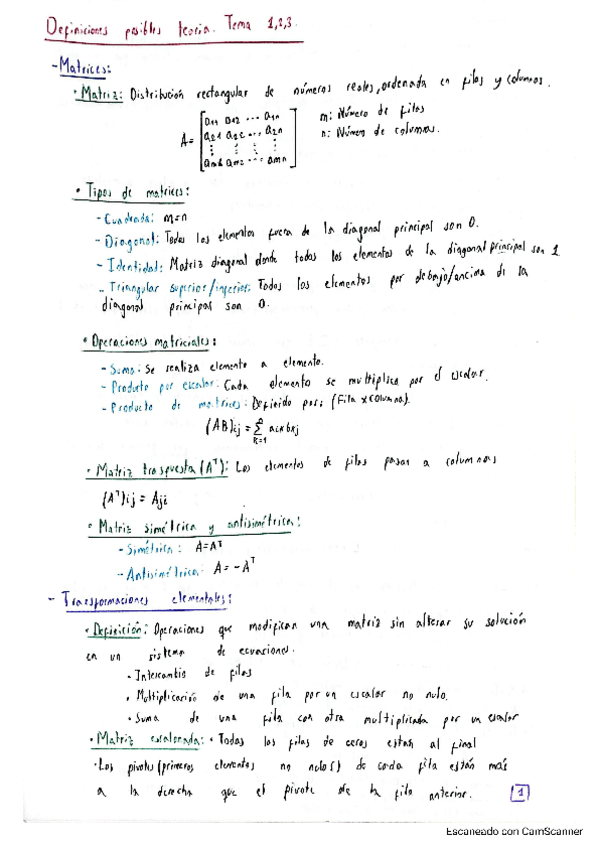 Definiciones posibles teoría. Tema 1,2,3.
- Matrices:
• Matriz: Distribución rectangular de números reales, ordenada en filas y columnas.
A = [a11 a12 ... a1n
a21 a22 ... a2n
⋮ ⋮ ⋮ ⋮
am1 am2 ... amn]
m: Número de filas
n: Número de columnas.
• Tipos de matrices:
- Cuadrada: m=n
- Diagonal: Todos los elementos fuera de la diagonal principal son 0.
- Identidad: Matriz diagonal donde todos los elementos de la diagonal principal son 1
- Triangular superior/inferior: Todos los elementos por debajo/encima de la
diagonal principal son 0.
• Operaciones matriciales:
- Suma: Se realiza elemento a elemento.
- Producto por escalar: Cada elemento se multiplica por el escalar.
- Producto de matrices: Definido por: (Fila x columna).
(AB)ij = Σ aik bkj
k=1
• Matriz traspuesta (Aᵀ): Los elementos de filas pasan a columnas
(Aᵀ)ij = Aji
• Matriz simétrica y antisimétrica:
- Simétrica: A=Aᵀ
- Antisimétrica: A = -Aᵀ
- Transformaciones elementales:
• Definición: Operaciones que modifican una matriz sin alterar su solución
en un sistema de ecuaciones.
• Intercambio de filas
• Multiplicación de una fila por un escalar no nulo.
• Suma de una fila con otra multiplicada por un escalar
• Matriz escalonada: • Todas las filas de ceros están al final
• Los pivotes (primeros elementos no nulos) de cada fila están más
a la derecha que el pivote de la fila anterior.
1
Escaneado con CamScanner